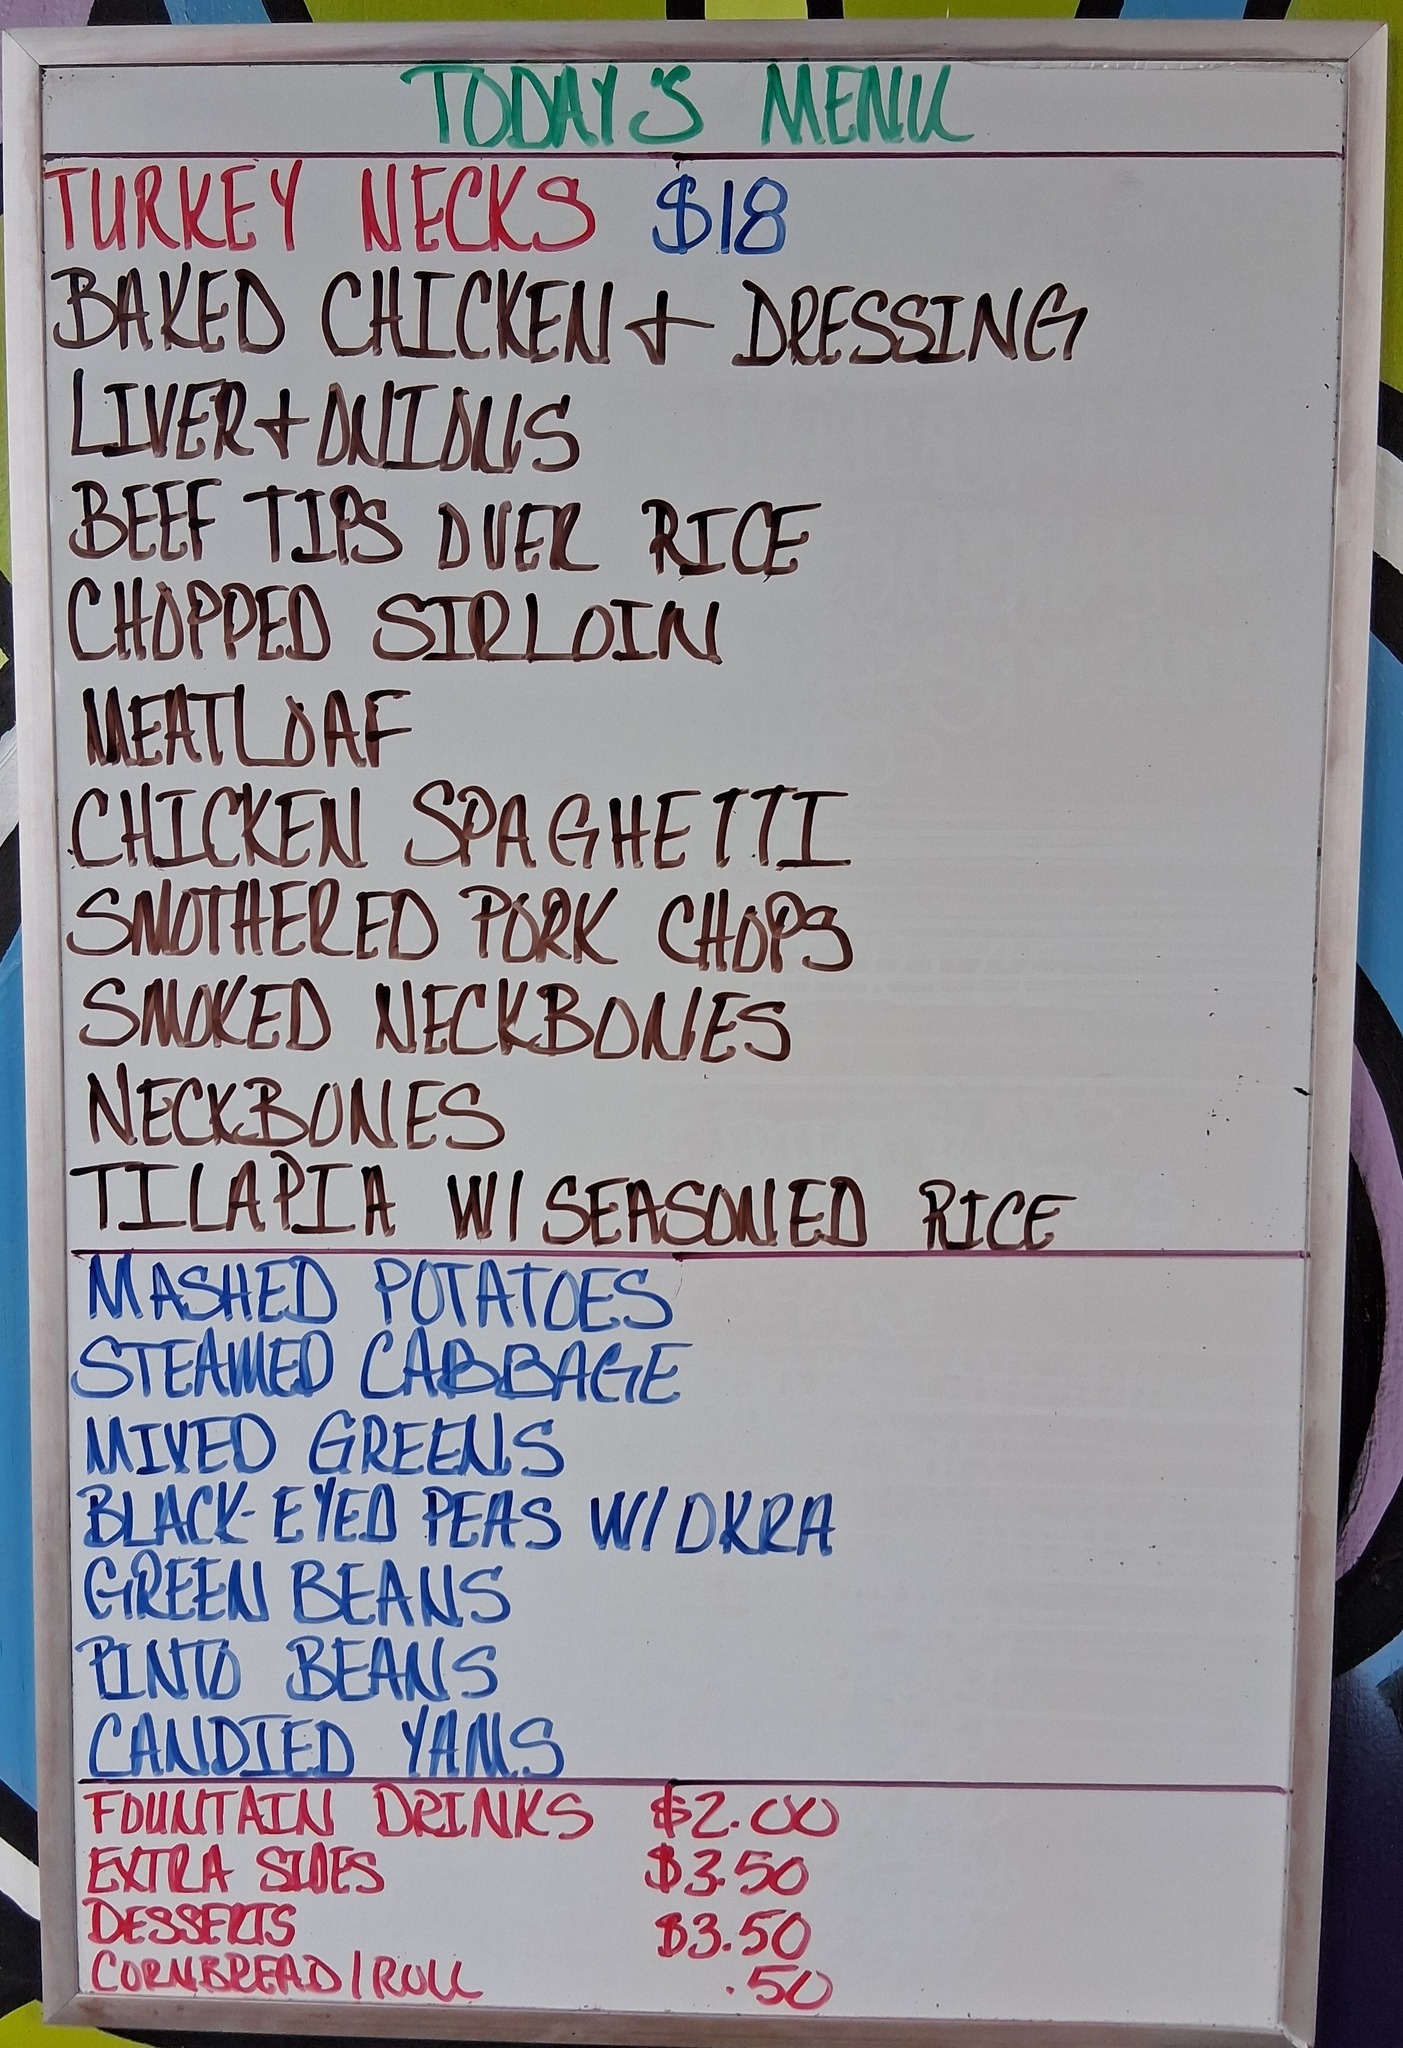 TODAY'S MENU
TURKEY NECKS $18
BAKED CHICKEN + DRESSING
LIVER + ONIONS
BEEF TIPS OVER RICE
CHOPPED SIRLOIN
MEATLOAF
CHICKEN SPAGHETTI
SMOTHERED PORK CHOPS
SMOKED NECKBONES
NECKBONES
TILAPIA W/ SEASONED RICE
MASHED POTATOES
STEAMED CABBAGE
MIXED GREENS
BLACK-EYED PEAS W/ OKRA
GREEN BEANS
PINTO BEANS
CANDIED YAMS
FOUNTAIN DRINKS $2.00
EXTRA SIDES $3.50
DESSERTS $3.50
CORNBREAD/ROLL .50